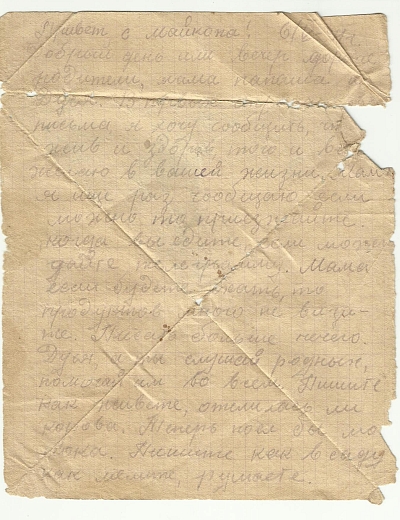 Привет с Майкопа!
Добрый день или вечер
родители, мама папаша и
Дуся. В первых
письма я хочу сообщить, что
жив и здоров того и вам
желаю в вашей жизни. Мама
я ещё раз сообщаю, если
можно, то приезжайте
когда выедите, если можете
дайте телеграмму. Мама
если будете ехать, то
продуктов много не вези-
те. Писать больше нечего.
Дуся, а ты слушай родных,
помогай им во всем. Пишите
как живете, отелилась ли
корова. Теперь поел бы мо
лока. Пишите как
как